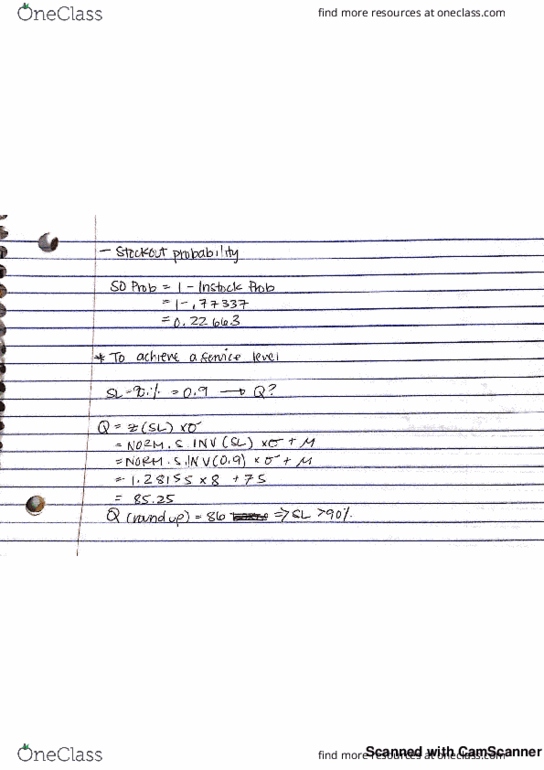 OneClass
find more resources at oneclass.com
- Stockout probability
SO Prob = 1 - Instock Prob
= 1 - .77337
= 0.22663
* To achieve a service level
SL = 90% = 0.9 → Q?
Q = z(SL) × σ
= NORM.S.INV(SL) × σ + M
= NORM.S.INV(0.9) × σ + M
= 1.28155 × 8 + 75
= 85.25
Q (round up) = 86 ⇒ SL > 90%
OneClass
find more resources at oneclass.com
Scanned with CamScanner